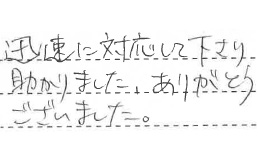 迅速に対応して下さり
助かりました、ありがとう
ございました。